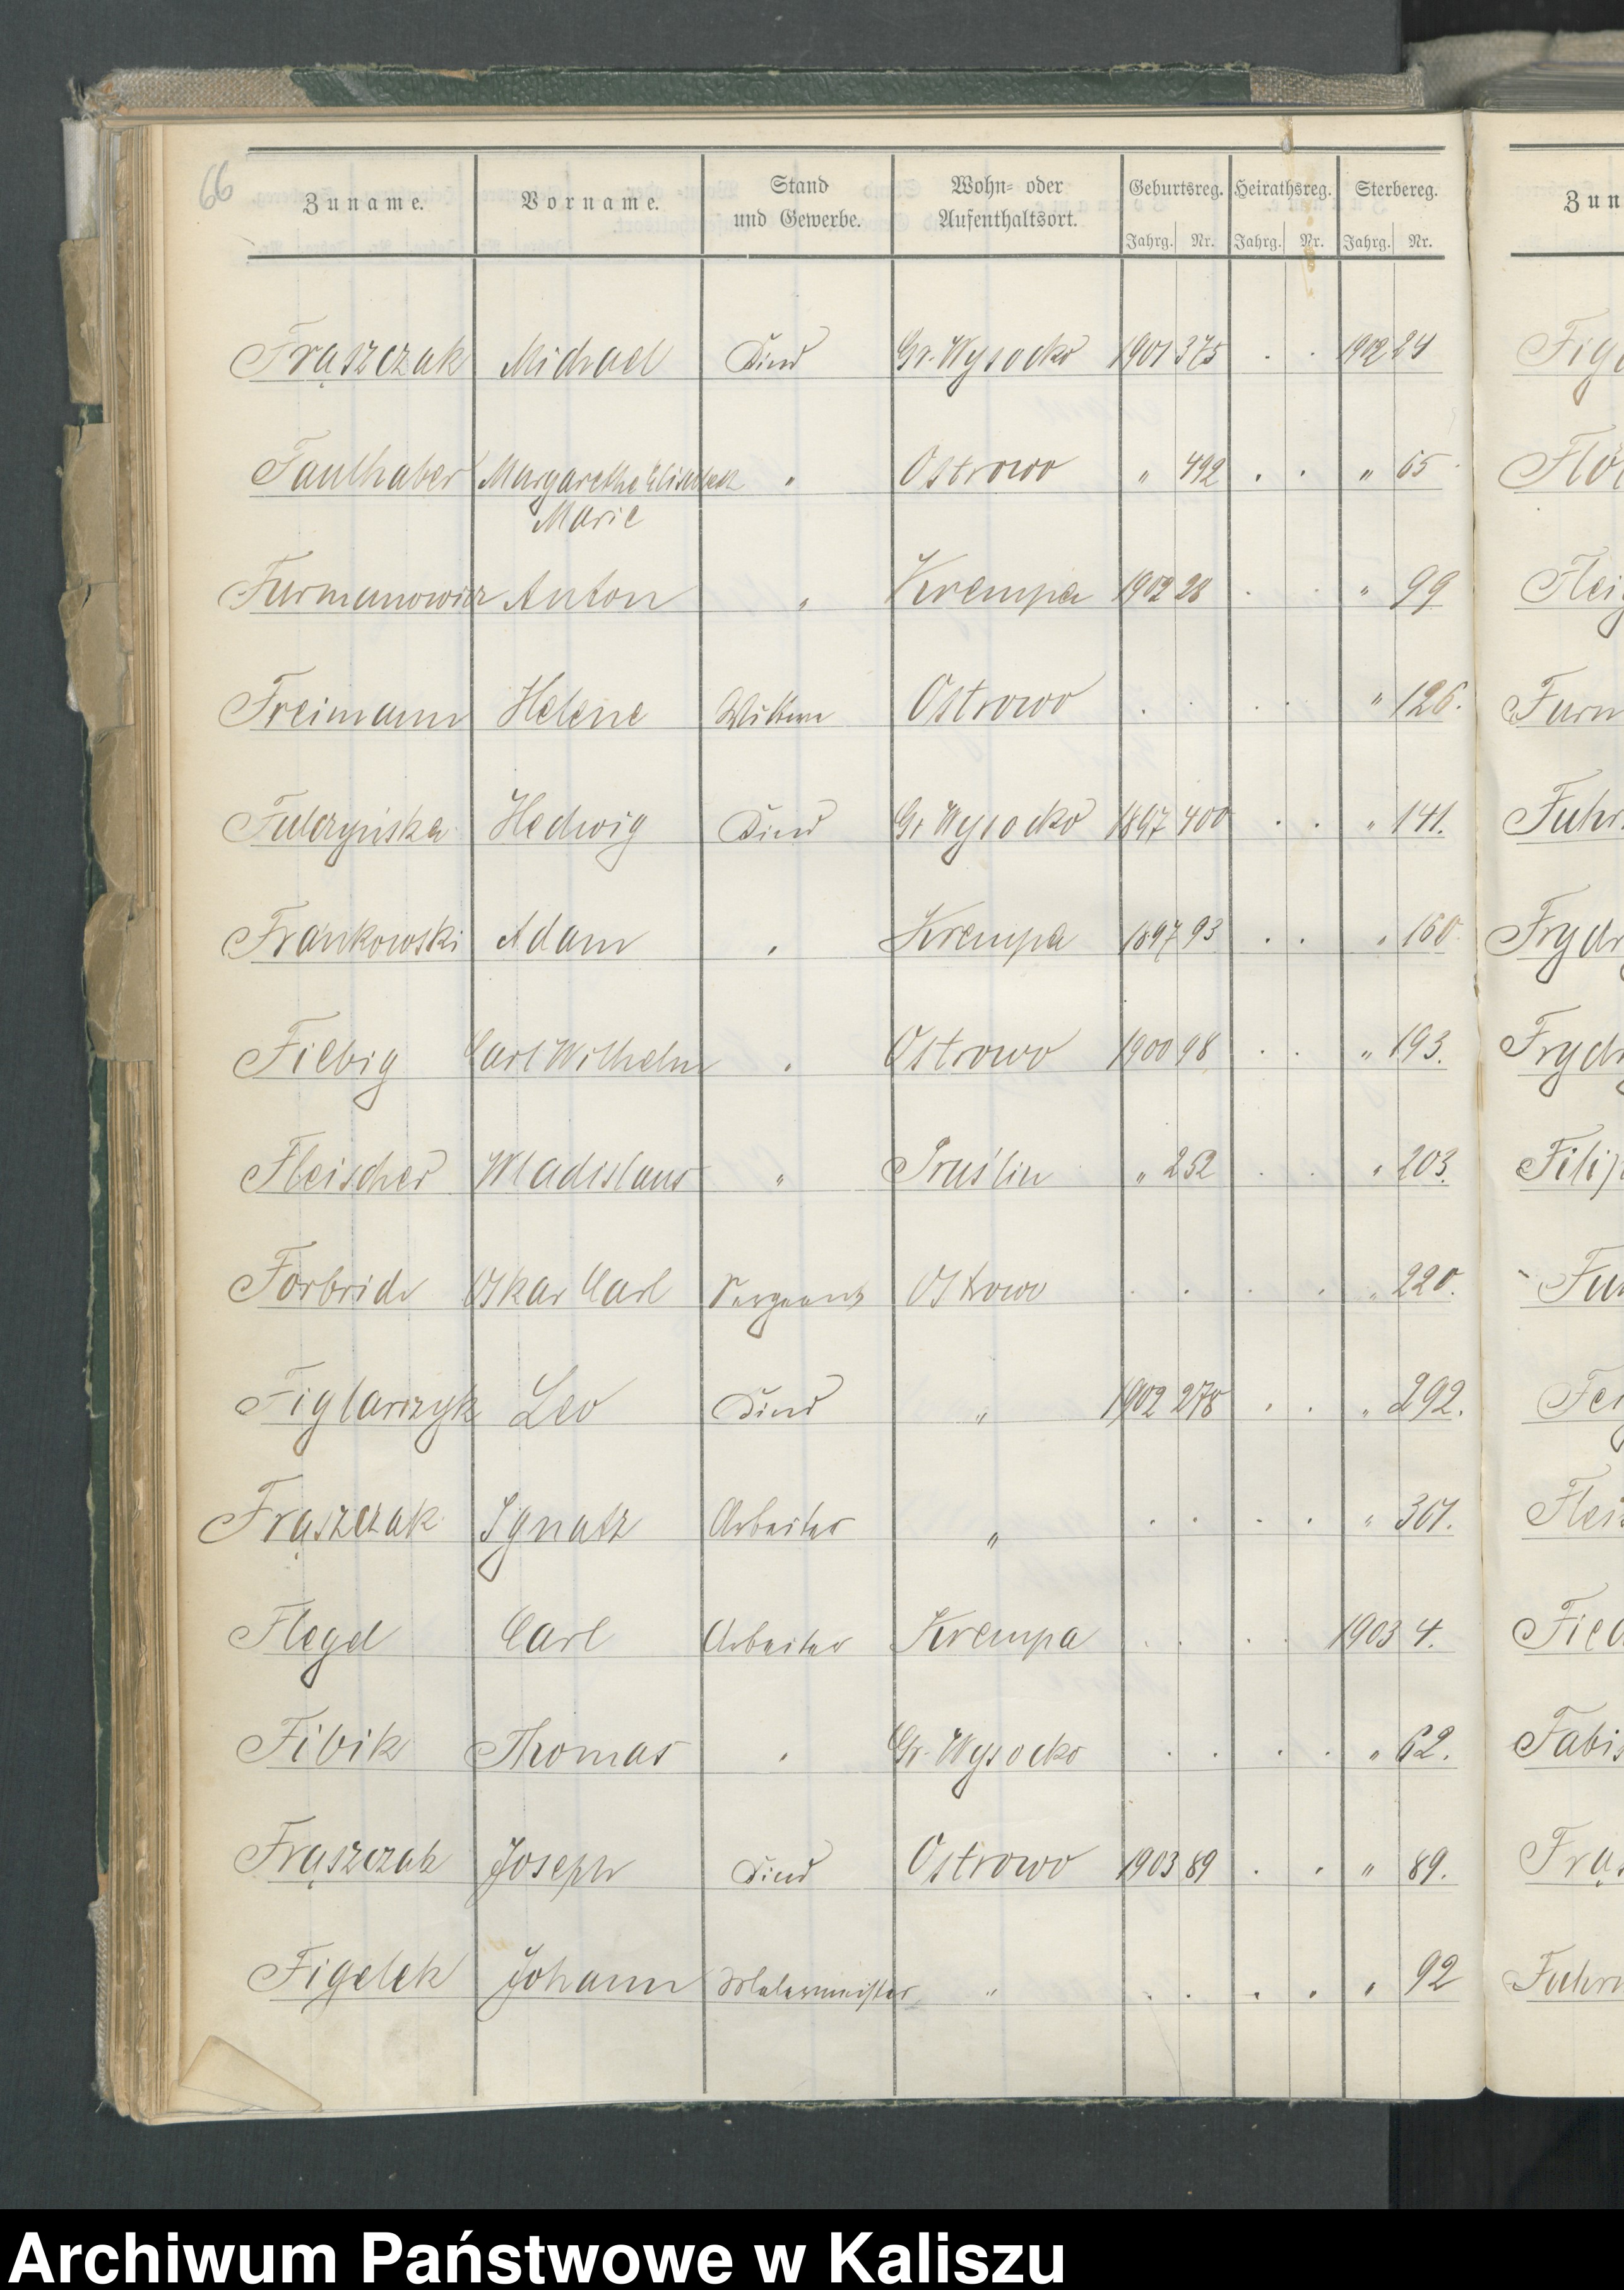 66
Zuname. Vorname. Stand und Gewerbe. Wohn- oder Aufenthaltsort. Geburtsreg. Heirathsreg. Sterbereg.
Jahrg. Nr. Jahrg. Nr. Jahrg. Nr.
Zun
Frąszczak Michael Kind Gr. Wysocko 1901 375 . . 1902 24
Faulhaber Margarethe Elisabeth Marie " Ostrowo " 492 . . " 65
Furmanowicz Anton " Krempa 1902 28 . . " 99
Freimann Helene Wittwe Ostrowo . . . . " 126.
Fulczyńska Hedwig Kind Gr Wysocko 1897 400 . . " 141.
Frankowski Adam " Krempa 1897 93 . . " 160.
Fiebig Carl Wilhelm " Ostrowo 1900 98 . . " 193.
Fleischer Wladislaus " Pruślin " 252 . . " 203.
Forbrich Oskar Carl Sergeant Ostrowo . . . . " 220.
Figlarzyk Leo Kind " 1902 278 . . " 292.
Frąszczak Ignatz Arbeiter " . . . . " 301.
Flegel Carl Arbeiter Krempa . . . . 1903 4.
Fibik Thomas " Gr. Wysocko . . . . " 62.
Frąszczak Joseph Kind Ostrowo 1903 89 . . " 89.
Figelek Johann Malermeister " . . . . " 92
Archiwum Państwowe w Kaliszu